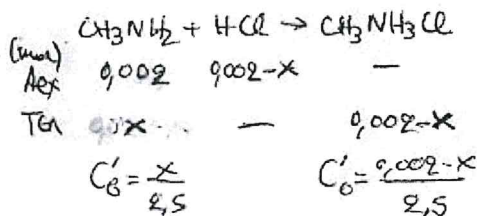 CH3NH2 + HCl → CH3NH3Cl
(mol)
Αρχ 0,002 0,002-x —
Τελ x — 0,002-x
C'B = x/2,5 C'o = 0,002-x/2,5